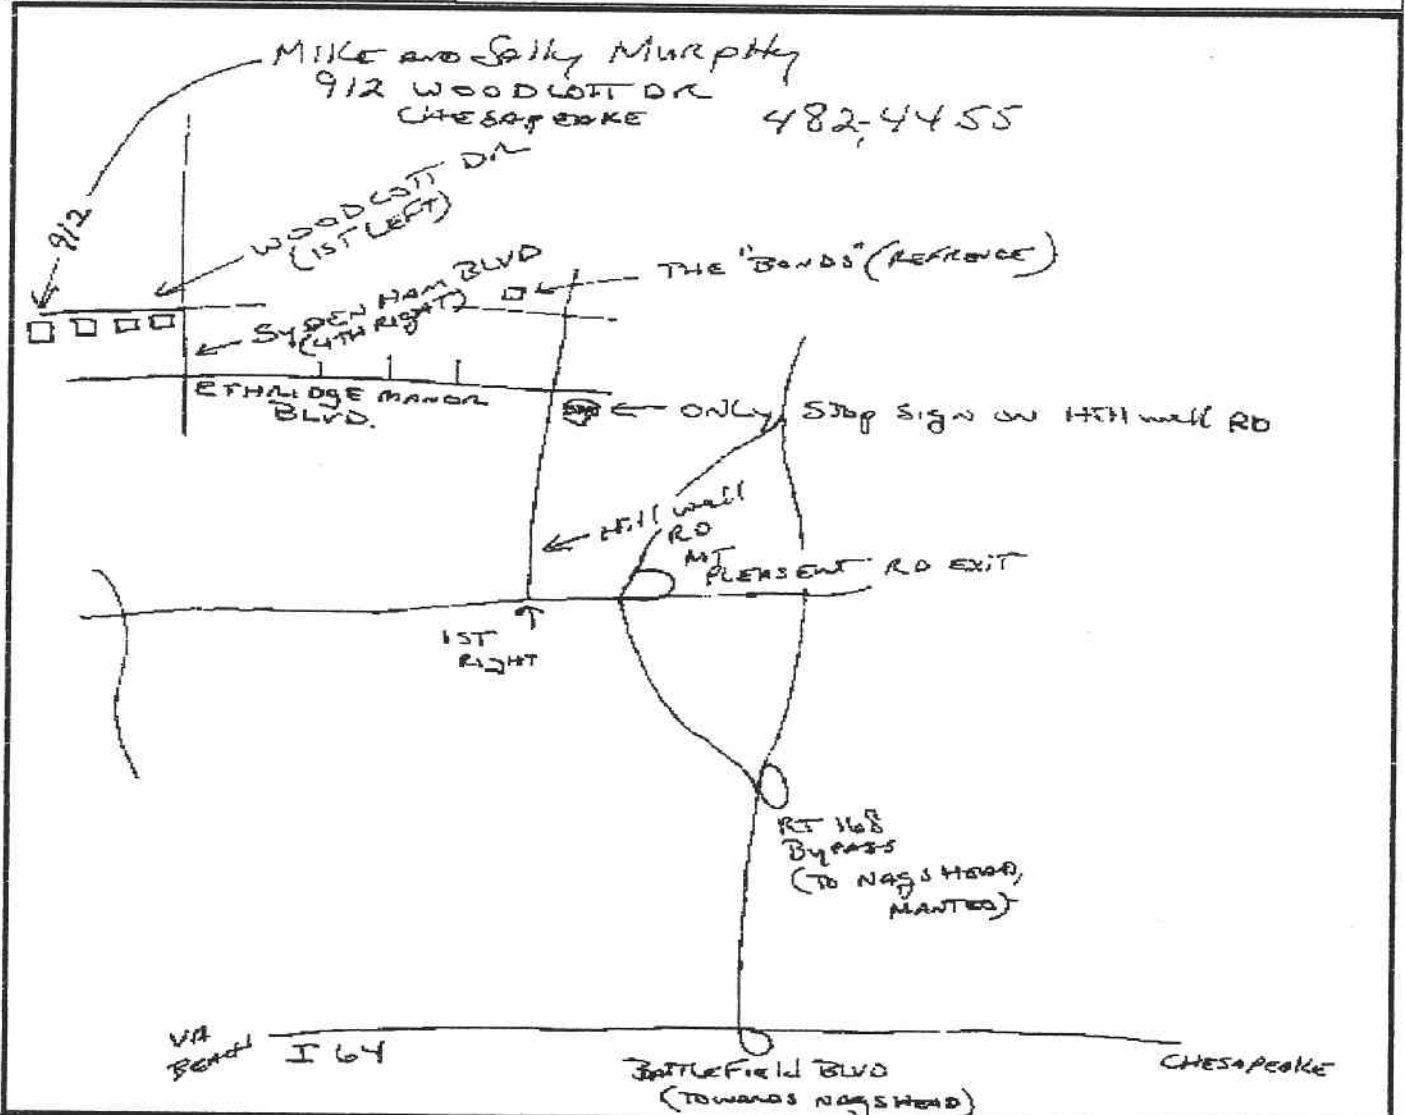 MIKE AND Sally MURPHY
912 WOODCOTT DR
CHESAPEAKE
482-4455
912
WOODCOTT DR
(1ST LEFT)
SYDENHAM BLVD
(4TH RIGHT)
THE "BONDS" (REFRENCE)
ETHRIDGE MANOR
BLVD.
ONLY STOP SIGN ON Hillwell RD
Hillwell
RD
MT
PLEASENT RD EXIT
1ST
RIGHT
RT 168
BYPASS
(TO NAGS HEAD,
MANTEO)
VA
BEACH
I 64
CHESAPEAKE
BATTLEFIELD BLVD
(TOWARDS NAGSHEAD)